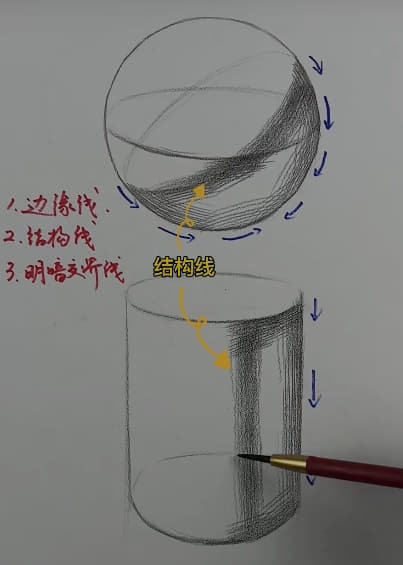 1.边缘线.
2.结构线
3.明暗交界线
结构线